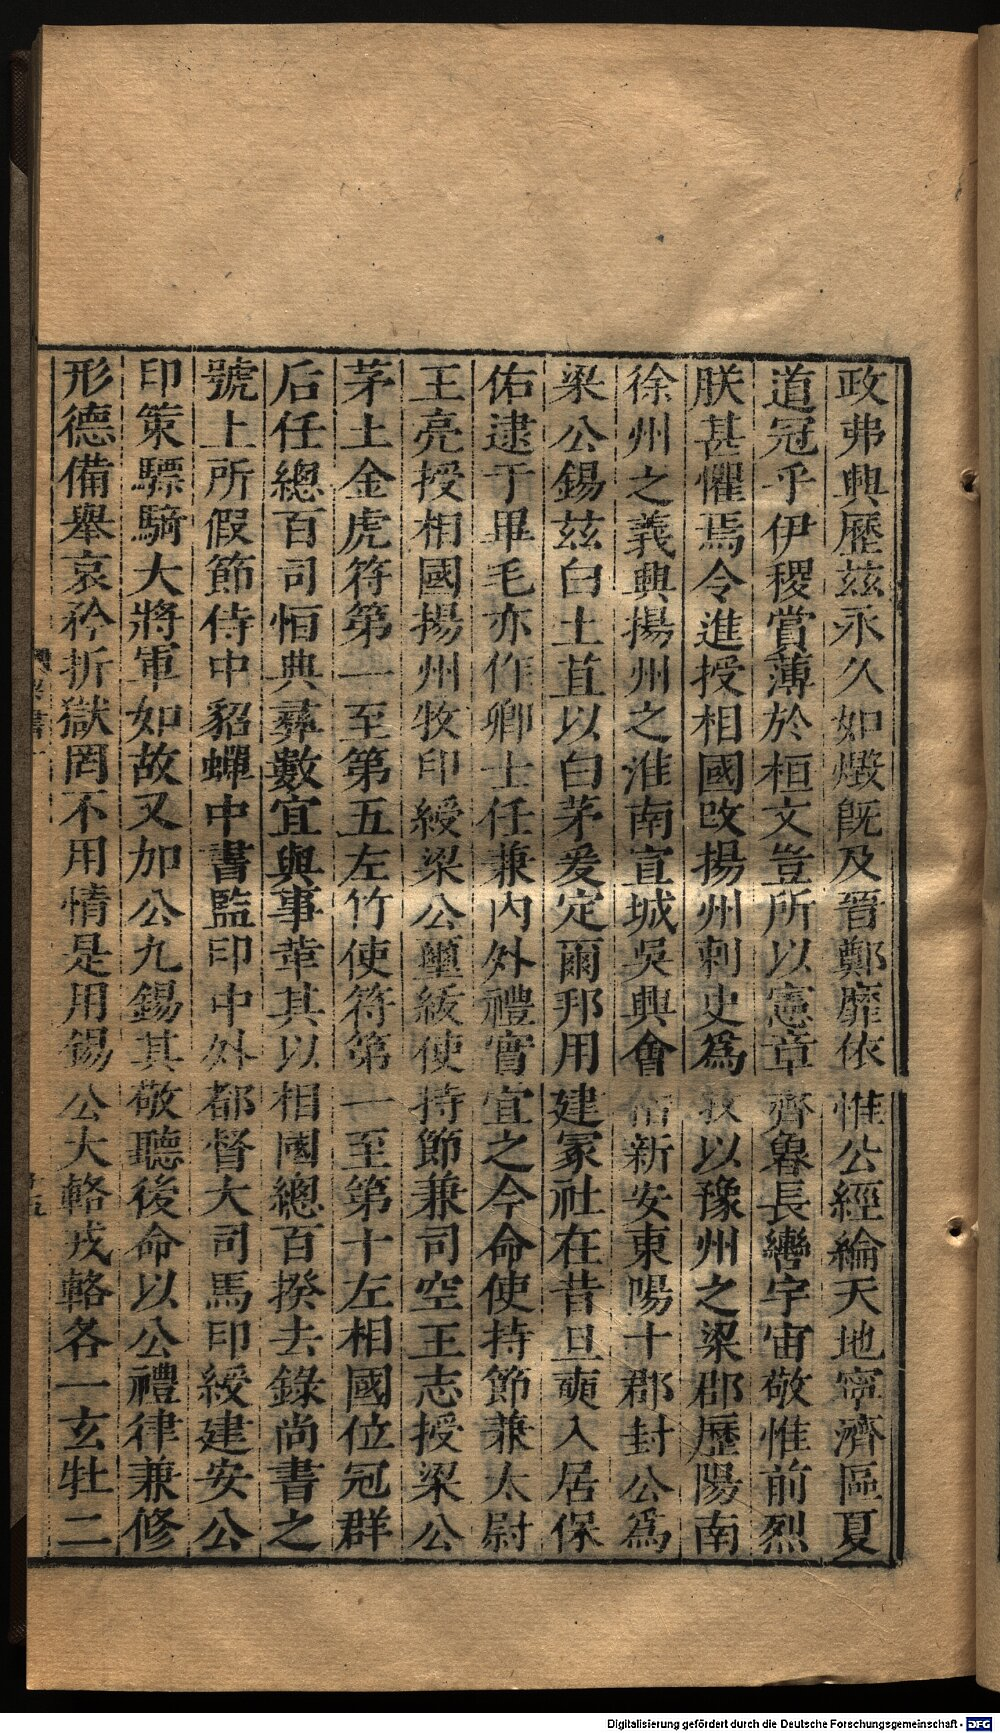 政弗興歷茲永久如燬旣及晉鄭靡依惟公經綸天地寧濟區夏
道冠乎伊稷賞薄於桓文豈所以憲章齊魯長轡宇宙敬惟前烈
朕甚懼焉令進授相國改揚州刺史爲以豫州之梁郡歷陽南
徐州之義興揚州之淮南宣城吳興會新安東陽十郡封公爲
梁公錫茲白土苴以白茅爰定爾邦用建冢社在昔旦奭入居保
佑逮于畢毛亦作卿士任兼內外禮實宜之今命使持節兼太尉
王亮授相國揚州牧印綬梁公璽紱使持節兼司空王志授梁公
茅土金虎符第一至第五左竹使符第一至第十左相國位冠群
后任總百司恒典彝數宜與事革其以相國總百揆去錄尚書之
號上所假節侍中貂蟬中書監印中外都督大司馬印綬建安公
印策驃騎大將軍如故又加公九錫其敬聽後命以公禮律兼修
形德備舉哀矜折獄罔不用情是用錫公大輅戎輅各一玄牡二
Digitalisierung gefördert durch die Deutsche Forschungsgemeinschaft - DFG